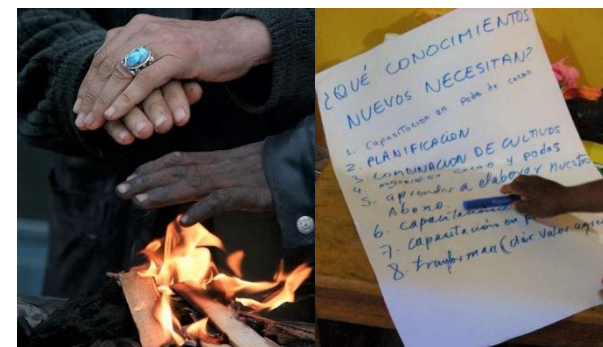 ¿QUÉ CONOCIMIENTOS
NUEVOS NECESITAN?
1. Capacitacion en poda de cacao
2. PLANIFICACION
3. COMBINACION DE CULTIVOS
4. cacao y podas
5. aprender a elaborar nuestro
Abono.
6. capacitacion
7. capacitación en
8. transformar (dar valor agre